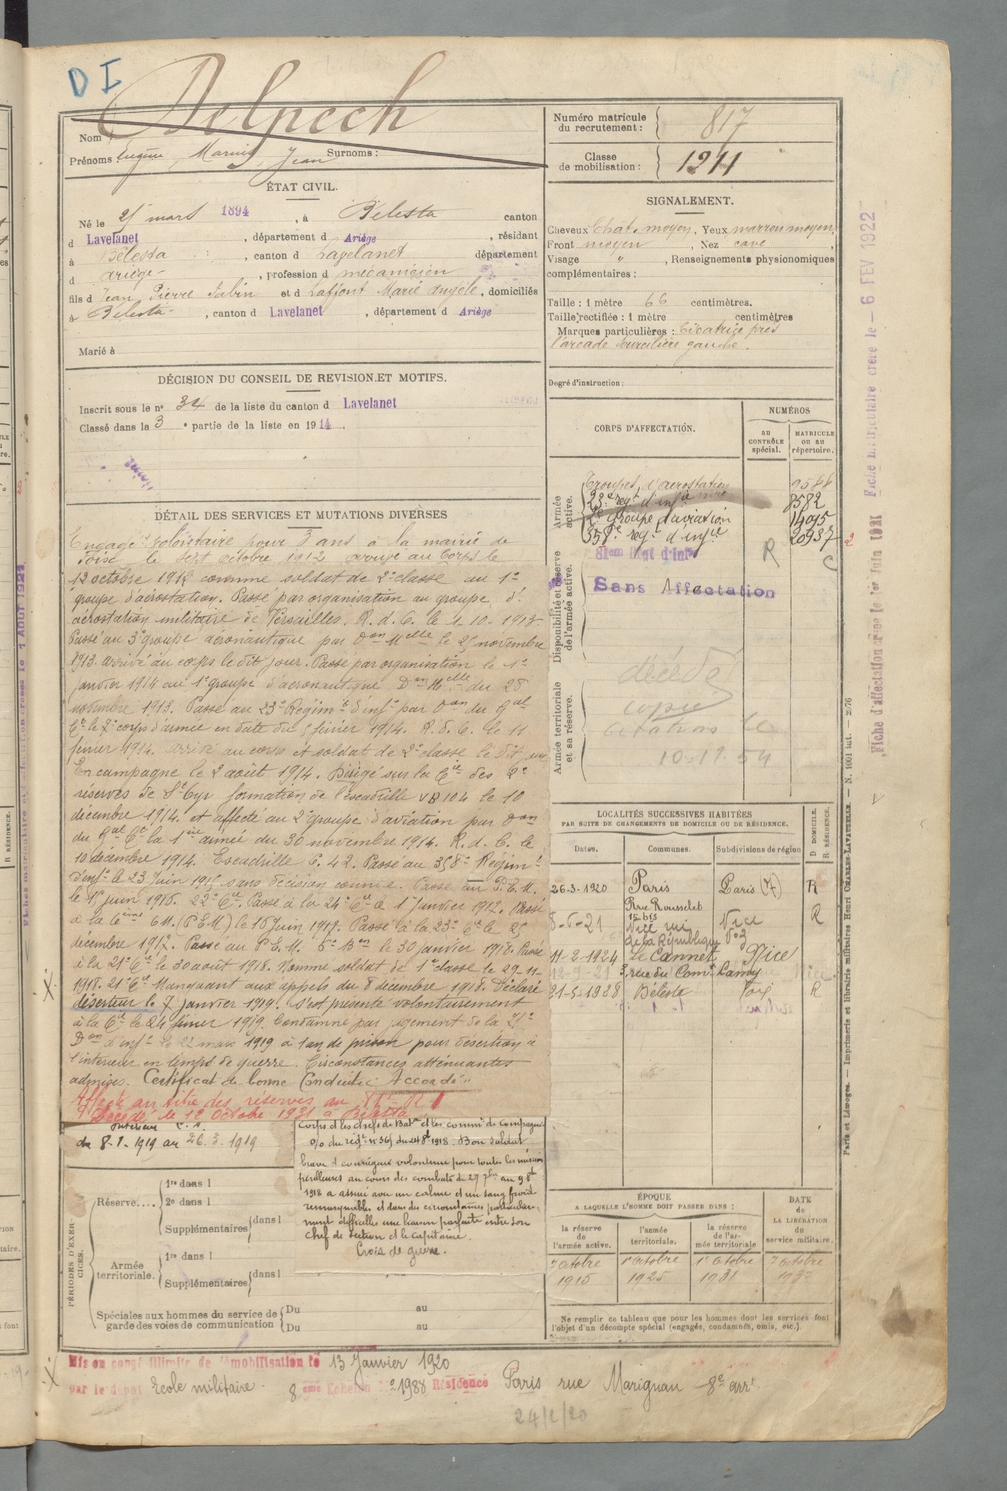 D I
Delpech
Nom
Prénoms: Eugène, Marius, Jean Surnoms:
ÉTAT CIVIL.
Né le 25 mars 1894, à Bélesta canton
d Lavelanet, département d Ariège, résidant
à Bélesta, canton d Lavelanet département
d Ariège, profession d mécanicien
fils d Jean Pierre et d Laffont Marie Angèle, domiciliés
à Bélesta, canton d Lavelanet, département d Ariège
Marié à
DÉCISION DU CONSEIL DE REVISION ET MOTIFS.
Inscrit sous le n° 34 de la liste du canton d Lavelanet
Classé dans la 3e partie de la liste en 1914.
DÉTAIL DES SERVICES ET MUTATIONS DIVERSES
Engagé volontaire pour 3 ans à la mairie de
le sept octobre 1912 arrivé au corps le
comme soldat de 2e classe au 1er
groupe d'aérostation. Passé par organisation au groupe d'
aérostation militaire de Versailles. R. d. C. le 1.10.1913
Passé au 3e groupe aéronautique par Don Melle le 25 novembre
1913 arrivé au corps le dit jour. Passé par organisation le 1er
janvier 1914 au 1er groupe d'aéronautique Don Melle du 28
novembre 1913. Passé au 23e Régimt d'infie par Don du Gal
Ct le 7e corps d'armée en date du 5 février 1914. R. d. C. le 11
février 1914. arrivé au corps et soldat de 2e classe le dit jour
En campagne le 2 août 1914. Dirigé sur la Cie des
réserves de St Cyr formation de l'escadrille VB 104 le 10
décembre 1914. et affecté au 2e groupe d'aviation par Don
du Gal Ct la 1ère armée du 30 novembre 1914. R. d. C. le
10 décembre 1914. Escadrille C. 42. Passé au 358e Régimt
d'infie le 23 Juin 1915 sans décision connue. Passé au P.E.M.
le 1er juin 1916. 22e Cie. Passé à la 24e Cie le 1er janvier 1917. Passé
à la 6ème CM. (P.E.M) le 16 Juin 1917. Passé à la 23e Cie le 25
décembre 1917. Passé au P.E.M. 5e Bon le 30 janvier 1918. Passé
à la 21e Cie le 30 août 1918. Nommé soldat de 1e classe le 29-11-
1918. 21e Cie Manquant aux appels du 8 décembre 1918. Déclaré
déserteur le 7 janvier 1919. s'est présenté volontairement
à la Cie le 24 février 1919. Condamné par jugement de la
Don d'infie le 22 mars 1919 à 1 an de prison pour désertion à
l'intérieur en temps de guerre. Circonstances atténuantes
admises. Certificat de bonne Conduite: Accordé
Affecté au titre des réserves au R I
Décédé le 12 Octobre 1931 à Bélesta
Intérieur
du 8-1-1919 au 26.3.1919
Corps d les chefs de Baton et les commts de Compagnie
o/o du régt n° 36 du 24 8bre 1918. Bon soldat
brave et courageux volontaire pour toutes les missions
périlleuses au cours des combats du 29 7bre au 9 8bre
1918 a assuré avec un calme et un sang froid
remarquables et dans des circonstances particulière-
ment difficiles une liaison parfaite entre son
chef de section et le capitaine.
Croix de guerre.
PÉRIODES D'EXERCICES.
Réserve....
1re dans l
2e dans l
Supplémentaires dans l
Armée territoriale.
1re dans l
Supplémentaires dans l
Spéciales aux hommes du service de garde des voies de communication
Du au
Du au
Mis en congé illimité de démobilisation le 13 Janvier 1920
par le dépôt Ecole militaire. 8 eme Echelon n° 21988 Résidence Paris rue Marignan 8e arrt
24/2/20
Numéro matricule du recrutement: 817
Classe de mobilisation: 1911
SIGNALEMENT.
Cheveux Chât. moyen, Yeux marron moyen,
Front moyen, Nez cave,
Visage ", Renseignements physionomiques
complémentaires:
Taille: 1 mètre 66 centimètres.
Taille rectifiée: 1 mètre centimètres
Marques particulières: Cicatrice près
l'arcade sourcilière gauche.
Degré d'instruction:
CORPS D'AFFECTATION.
NUMÉROS
AU CONTRÔLE spécial.
MATRICULE OU AU répertoire.
Armée active.
Troupes d'aérostation
23e regt d'infie 8582
2e Groupe d'aviation 14095
358e regt d'infie 20937
R
C
Disponibilité et réserve de l'armée active.
Sans Affectation
Armée territoriale et sa réserve.
décédé
copie
citations le
10-11-54
LOCALITÉS SUCCESSIVES HABITÉES
PAR SUITE DE CHANGEMENTS DE DOMICILE OU DE RÉSIDENCE.
Dates. Communes. Subdivisions de région D DOMICILE. R RÉSIDENCE.
26-3-1920 Paris Paris (7) R
8-6-21 15 bis Nice rue de la République Nice R
11-2-1924 Le Cannet Nice
3, rue du Comt Lamy
21-5-1928 Bélesta Foix R
ÉPOQUE
A LAQUELLE L'HOMME DOIT PASSER DANS:
la réserve de l'armée active.
l'armée territoriale.
la réserve de l'armée territoriale
DATE de LA LIBÉRATION du service militaire.
7 octobre 1915
1er octobre 1925
1er octobre 1931
7 octobre
Ne remplir ce tableau que pour les hommes dont les services font
l'objet d'un décompte spécial (engagés, condamnés, omis, etc.).
Fiche matriculaire créée le - 6 FEV 1922
Fiche d'affectation créée le 1er Juin 1931
Paris et Limoges. — Imprimerie et librairie militaires Henri CHARLES-LAVAUZELLE. — N. 1001 bis.